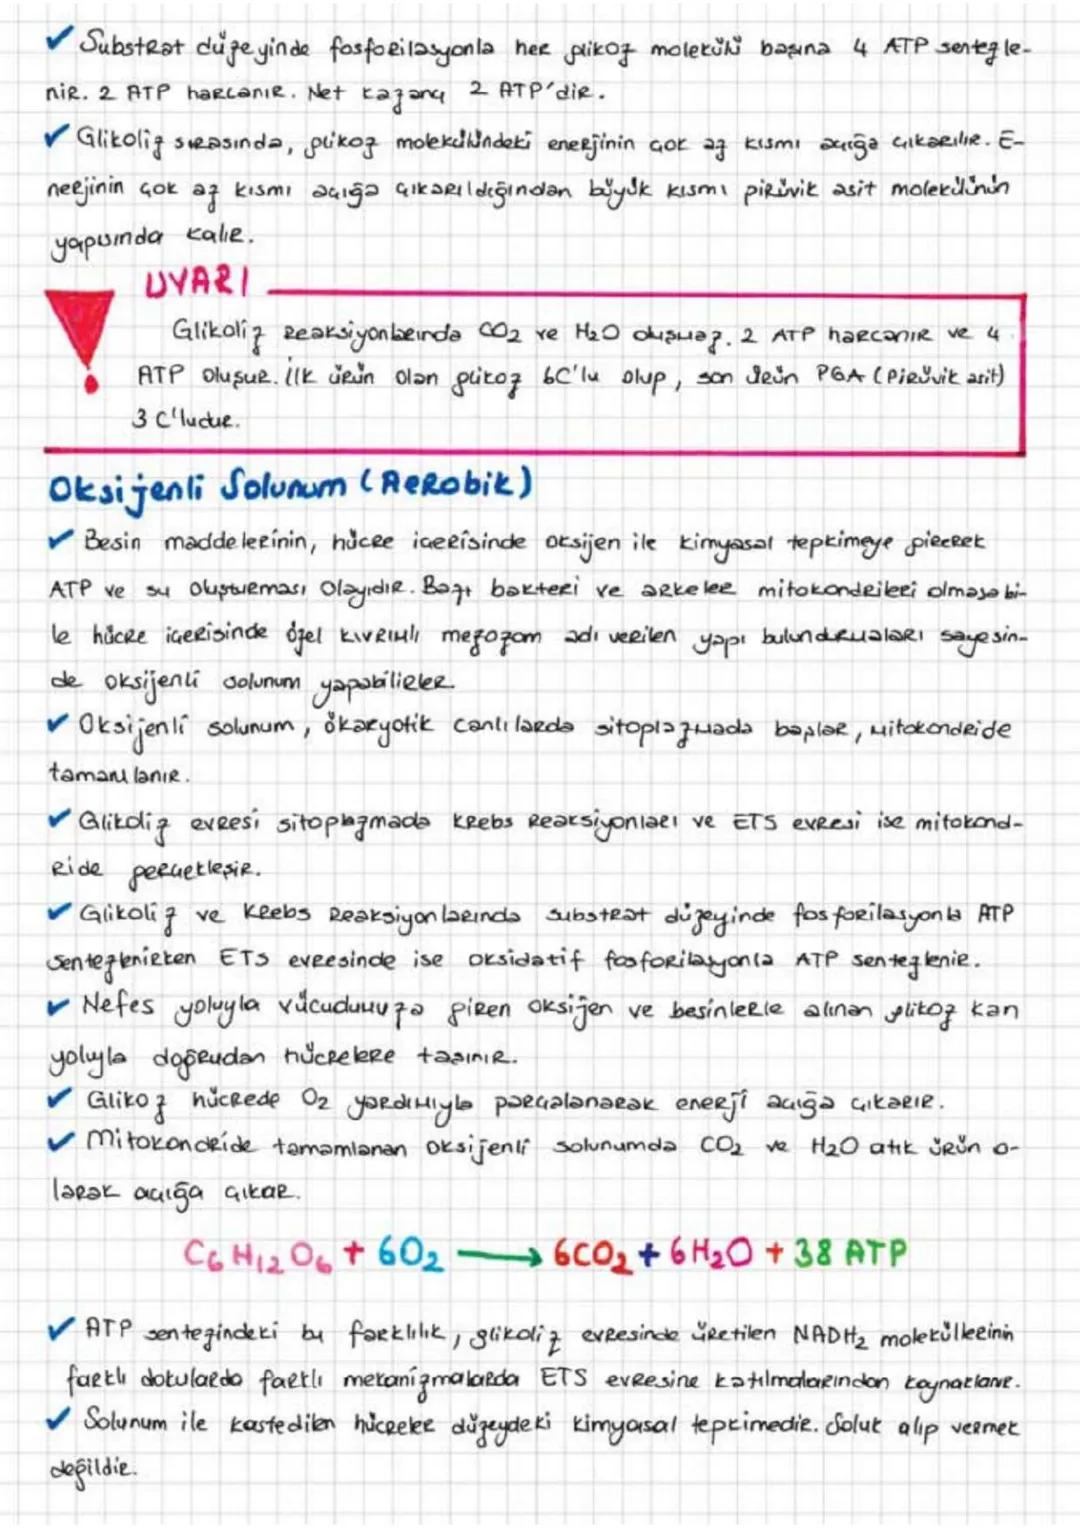 ✓ Substrat düzeyinde fosforilasyonla her glikoz molekülü başına 4 ATP sentezle-
nir. 2 ATP harcanır. Net kazanç 2 ATP'dir.
✓ Glikoliz sırasında, glikoz molekülündeki enerjinin çok az kısmı açığa çıkarılır. E-
nerjinin çok az kısmı açığa çıkarıldığından büyük kısmı pirüvik asit molekülünün
yapısında kalır.
UYARI
Glikoliz Reaksiyonlarında CO₂ ve H₂O oluşmaz. 2 ATP harcanır ve 4
ATP oluşur. İlk ürün olan glikoz 6C'lu olup, son ürün PGA (Pirüvik asit)
3 C'ludur.
Oksijenli Solunum (Aerobik)
✓ Besin maddelerinin, hücre içerisinde oksijen ile kimyasal tepkimeye girerek
ATP ve su oluşturması olayıdır. Bazı bakteri ve arkeler mitokondrileri olmasa bi-
le hücre içerisinde özel kıvrımlı mezozom adı verilen yapı bulundurmaları sayesin-
de oksijenli solunum yapabilirler.
✓ Oksijenli solunum, ökaryotik canlılarda sitoplazmada başlar, mitokondride
tamamlanır.
✓ Glikoliz evresi sitoplazmada Krebs Reaksiyonları ve ETS evresi ise mitokond-
ride gerçekleşir.
✓ Glikoliz ve Krebs Reaksiyonlarında substrat düzeyinde fosforilasyonla ATP
sentezlenirken ETS evresinde ise oksidatif fosforilasyonla ATP sentezlenir.
✓ Nefes yoluyla vücudumuza giren oksijen ve besinlerle alınan glikoz kan
yoluyla doğrudan hücrelere taşınır.
✓ Glikoz hücrede O₂ yardımıyla parçalanarak enerji açığa çıkarır.
✓ Mitokondride tamamlanan oksijenli solunumda CO₂ ve H₂O atık ürün o-
larak açığa çıkar.
C₆H₁₂O₆ + 6O₂ → 6CO₂ + 6H₂O + 38 ATP
✓ ATP sentezindeki bu farklılık, glikoliz evresinde üretilen NADH₂ moleküllerinin
farklı dokularda farklı mekanizmalarda ETS evresine katılmalarından kaynaklanır.
✓ Solunum ile kastedilen hücreler düzeydeki kimyasal tepkimedir. Soluk alıp vermek
değildir.